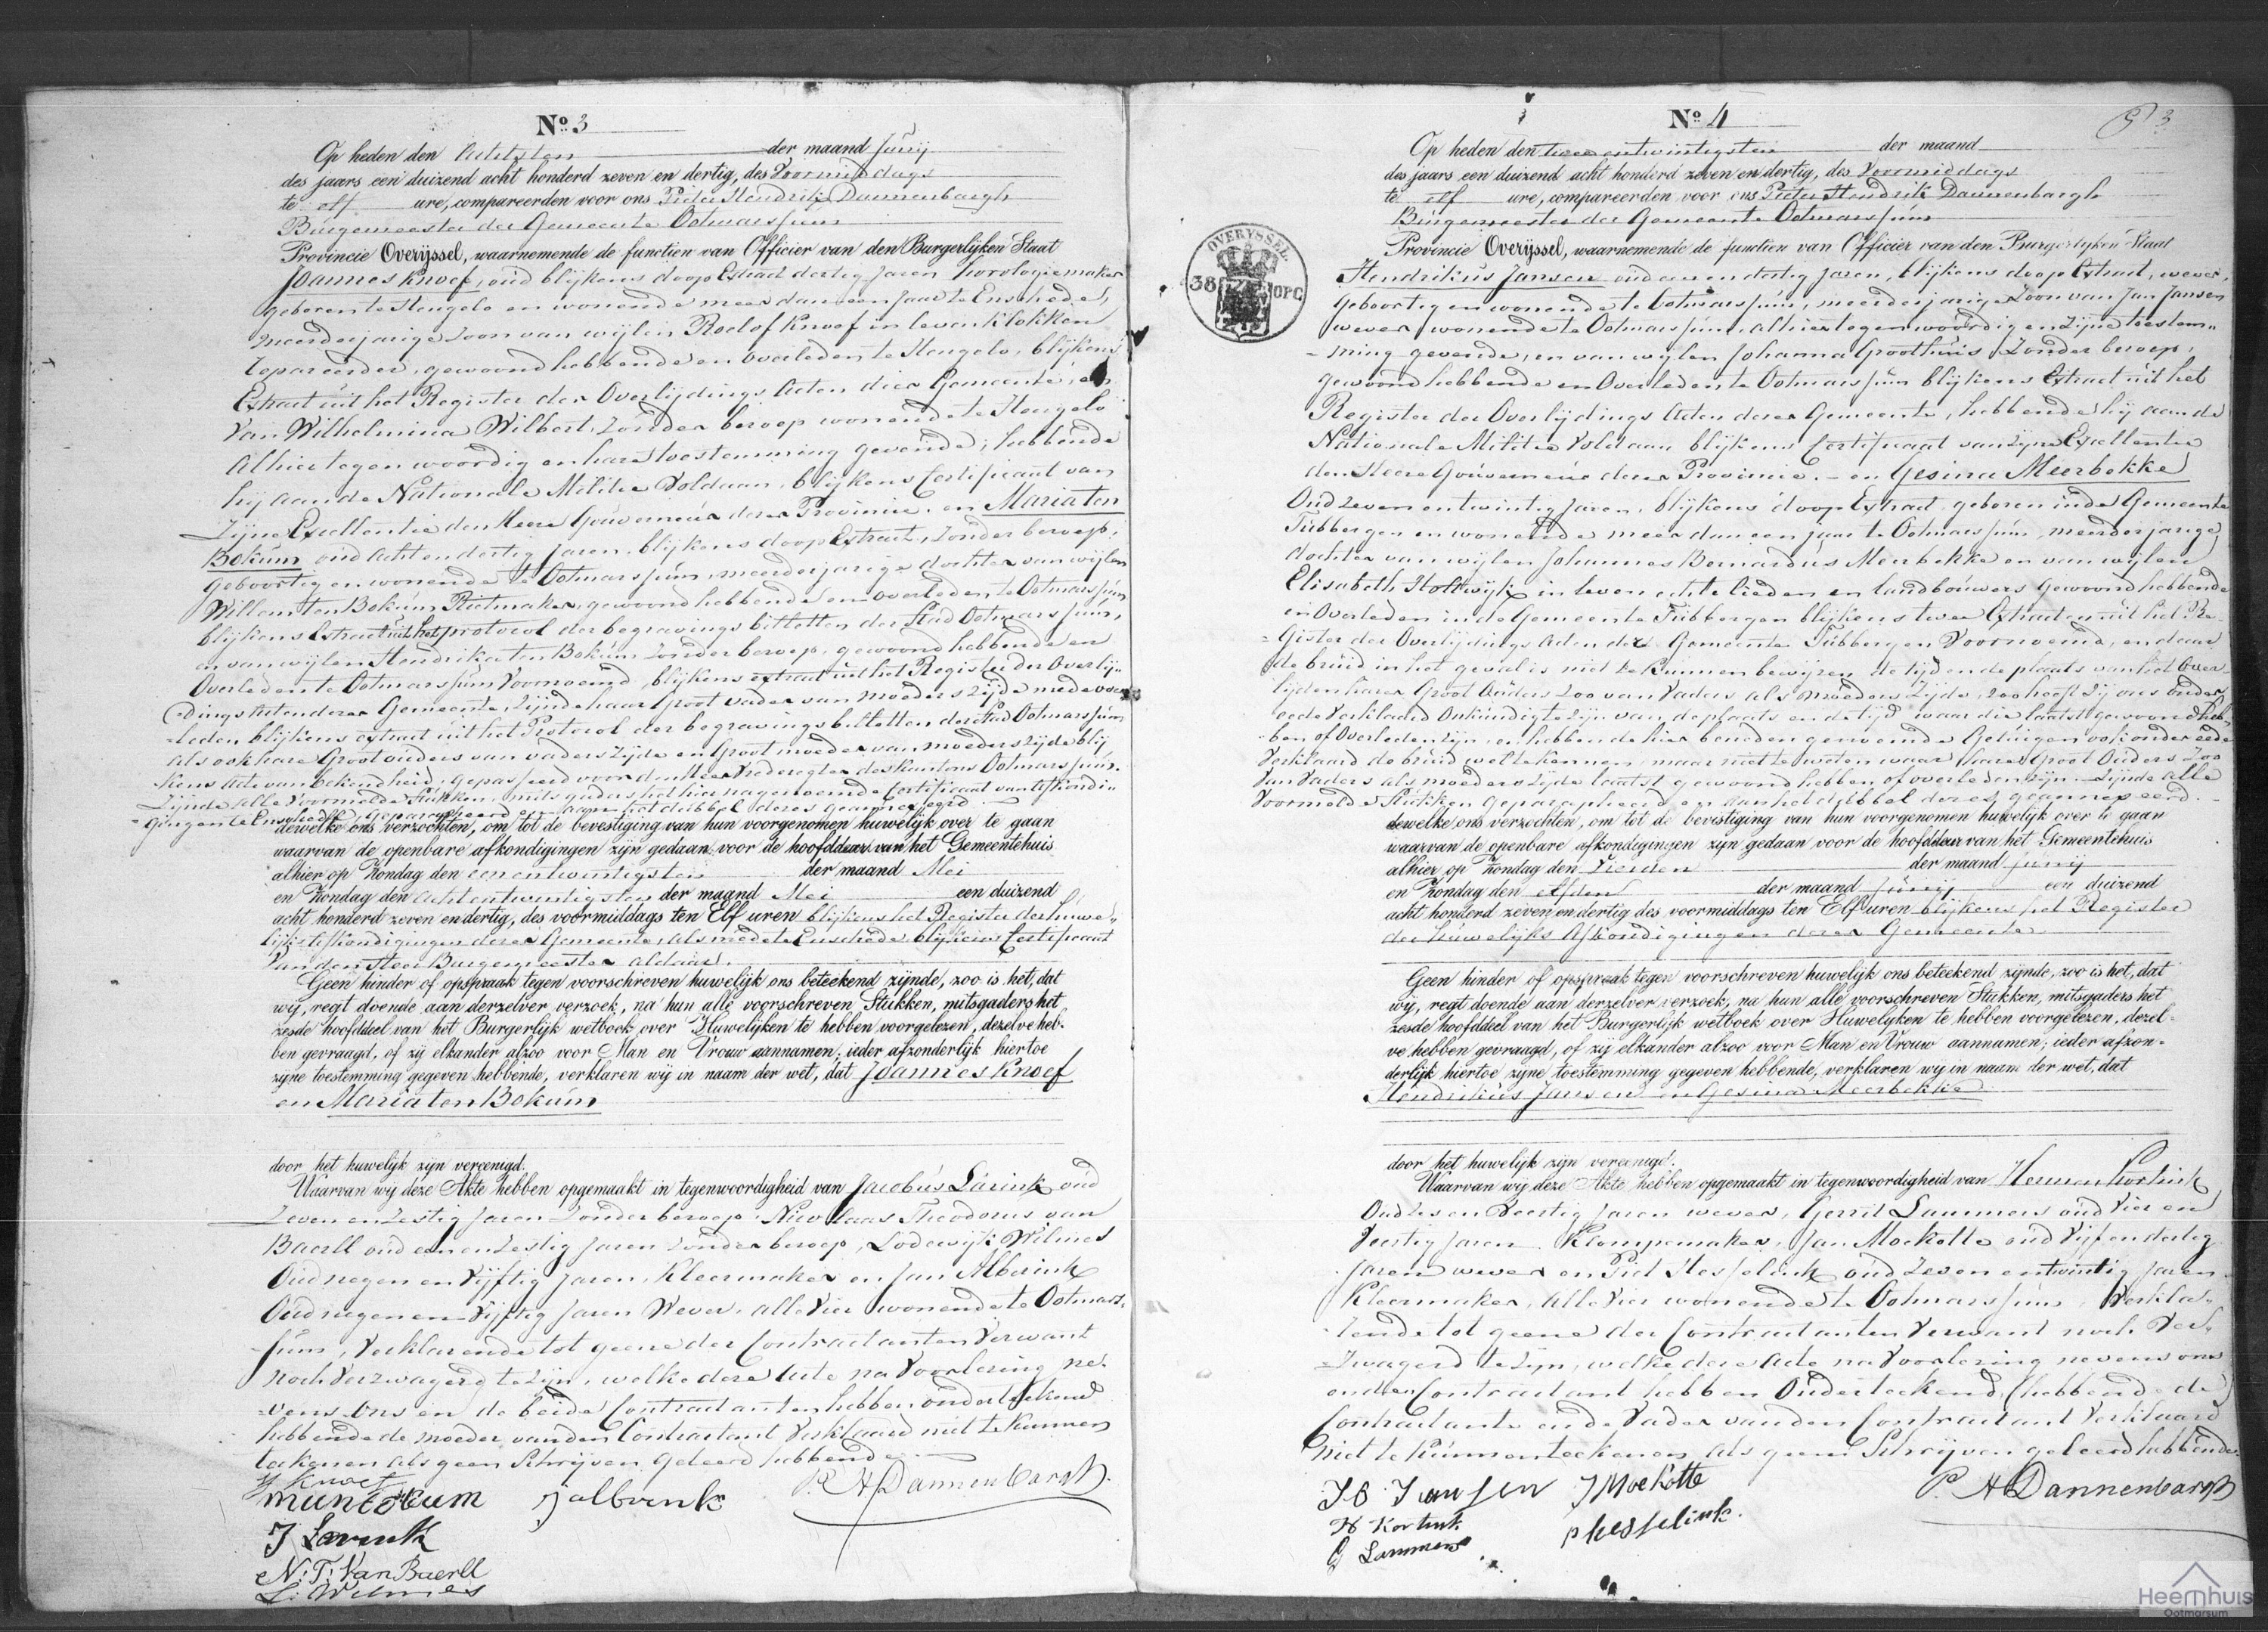 No. 3
Op heden den Achtsten der maand Junij
des jaars een duizend acht honderd zeven en dertig, des Voormiddags
te elf ure, compareerden voor ons Pieter Hendrik Dannenbargh
Burgemeester der Gemeente Ootmarssum
Provincie Overijssel, waarnemende de functien van Officier van den Burgerlijken Staat
Joannes Knoef, oud blijkens doop Extract dertig Jaren horologiemaker
geboren te Hengelo en wonende meer dan een jaar te Enschede,
meerderjarige zoon van wijlen Roelof Knoef in leven klokken
repareerder, gewoond hebbende en overleden te Hengelo, blijkens
Extract uit het Register der Overlijdings Acten dier Gemeente, en
Van Wilhelmina Wilbert, zonder beroep wonende te Hengelo
Alhier tegenwoordig en hare toestemming gevende; hebbende
hij aan de Nationale Militie Voldaan, blijkens Certificaat van
Zijne Excellentie den Heere Gouverneur dezer Provincie. en Maria ten
Bokum oud acht en dertig Jaren, blijkens doop Extract, zonder beroep,
geboortig en wonende te Ootmarssum, meerderjarige dochter van wijlen
Willem ten Bokum Rietmaker, gewoond hebbende en overleden te Ootmarssum
blijkens Extract uit het protocol der begravings billetten der Stad Ootmarssum,
en van wijlen Hendrika ten Bokum zonder beroep, gewoond hebbende en
Overleden te Ootmarssum Voornoemd, blijkens extract uit het Register der Overlij-
dings Acten dezer Gemeente, zijnde haar Groot vader van moeders zijde mede over-
leden blijkens extract uit het Protocol der begravings billetten der Stad Ootmarssum
als ook hare Grootouders van vaders zijde en Groot moeder van moeders zijde blij
kens Acte van bekendheid, gepasseerd voor den Heer Vrederegter des Kantons Ootmarssum.
Zijnde alle Voormelde Stukken, mitsgaders het hier nagenoemde Certificaat van Afkondi-
gingen te Enschede, geparapheerd en aan het dubbel dezes geannexeerd
dewelke ons verzochten, om tot de bevestiging van hun voorgenomen huwelijk over te gaan
waarvan de openbare afkondigingen zijn gedaan voor de hoofddeur van het Gemeentehuis
alhier op Zondag den een en twintigsten der maand Mei
en Zondag den acht en twintigsten der maand Mei een duizend
acht honderd zeven en dertig, des voormiddags ten Elf uren blijkens het Register der Huwe-
lijks Afkondigingen dezer Gemeente als mede te Enschede blijkens Certificaat
Van den Heer Burgemeester aldaar.
Geen hinder of opspraak tegen voorschreven huwelijk ons beteekend zijnde, zoo is het, dat
wij, regt doende aan derzelver verzoek, na hun alle voorschreven Stukken, mitsgaders het
zesde hoofddeel van het Burgerlijk wetboek over Huwelijken te hebben voorgelezen, dezelve heb-
ben gevraagd, of zij elkander alzoo voor Man en Vrouw aannamen; ieder afzonderlijk hiertoe
zijne toestemming gegeven hebbende, verklaren wij in naam der wet, dat Joannes Knoef
en Maria ten Bokum
door het huwelijk zijn vereenigd.
Waarvan wij deze Akte hebben opgemaakt in tegenwoordigheid van Jacobus Larink oud
Zeven en Zestig Jaren zonder beroep, Nicolaas Theodorus van
Baerll oud een en zestig Jaren zonder beroep, Lodewijk Wilmes
Oud negen en Vijftig Jaren, Kleermaker en Jan Alberink
Oud negen en Vijftig Jaren Wever, alle Vier wonende te Ootmars-
sum, Verklarende tot geene der Contractanten Verwant
noch Verzwagerd te zijn, welke deze Acte na Voorlezing ne-
vens Ons en de beide Contractanten hebben onderteekend
hebbende de moeder van den Contractant Verklaard niet te kunnen
teekenen als geen Schrijven geleerd hebbende.
J Knoef
M ten Bokum J Alberink P. H Dannenbargh.
J Larink
N: T: Van Baerll
L: Wilmes
No. 4
3
Op heden den twee en twintigsten der maand
des jaars een duizend acht honderd zeven en dertig, des Voormiddags
te elf ure, compareerden voor ons Pieter Hendrik Dannenbargh
Burgemeester der Gemeente Ootmarssum
OVERYSSEL.
38 OPC
Provincie Overijssel, waarnemende de functien van Officier van den Burgerlijken Staat
Hendrikus Jansen oud een en dertig Jaren, blijkens doop Extract, wever,
Geboortig en wonende te Ootmarssum, meerderjarige Zoon van Jan Jansen
wever, wonende te Ootmarssum, alhier tegenwoordig en zijne toestem-
ming gevende, en van wijlen Johanna Groothuis Zonder beroep,
gewoond hebbende en Overleden te Ootmarssum blijkens Extract uit het
Register der Overlijdings Acten dezer Gemeente, hebbende hij aan de
Nationale Militie Voldaan blijkens Certificaat van zijne Excellentie
den Heere Gouverneur dezer Provincie. – en Gesina Meerbekke
Oud zeven en twintig Jaren, blijkens doop Extract geboren in de Gemeente
Tubbergen en wonende meer dan een jaar te Ootmarssum, meerderjarige
dochter van wijlen Johannes Bernardus Meerbekke en van wijlen
Elisabeth Holtwijk in leven echte lieden en landbouwers gewoond hebbende
en Overleden in de Gemeente Tubbergen blijkens twee Extracten uit het Re-
gister der Overlijdings Acten der Gemeente Tubbergen Voornoemd, en daar
de bruid in het geval is niet te kunnen bewijzen de tijd en de plaats van het Over-
lijden harer Groot Ouders zoo van Vaders als moeders zijde, zoo heeft zij ons onder
eede Verklaard Onkundig te zijn van de plaats en de tijd waar die laatst gewoond heb-
ben of Overleden zijn, en hebben de hier beneden genoemde Getuigen ook onder eede
Verklaard de bruid wel te kennen, maar niet te weten waar hare Groot Ouders zoo
Van Vaders als moeders zijde laatst gewoond hebben of overleden zijn – zijnde alle
Voormelde Stukken geparapheerd en aan het dubbel dezes geannexeerd.
dewelke ons verzochten, om tot de bevestiging van hun voorgenomen huwelijk over te gaan
waarvan de openbare afkondigingen zijn gedaan voor de hoofddeur van het Gemeentehuis
alhier op Zondag den Vierden der maand Junij
en Zondag den elfden der maand Junij een duizend
acht honderd zeven en dertig des voormiddags ten Elf uren blijkens het Register
der Huwelijks Afkondigingen dezer Gemeente
Geen hinder of opspraak tegen voorschreven huwelijk ons beteekend zijnde, zoo is het, dat
wij, regt doende aan derzelver verzoek, na hun alle voorschreven Stukken, mitsgaders het
zesde hoofddeel van het Burgerlijk wetboek over Huwelijken te hebben voorgelezen, dezel-
ve hebben gevraagd, of zij elkander alzoo voor Man en Vrouw aannamen; ieder afzon-
derlijk hiertoe zijne toestemming gegeven hebbende, verklaren wij in naam der wet, dat
Hendrikus Jansen en Gesina Meerbekke
door het huwelijk zijn vereenigd.
Waarvan wij deze Akte hebben opgemaakt in tegenwoordigheid van Herman Kortink
Oud zes en Veertig Jaren wever, Gerrit Lammers oud Vier en
Veertig Jaren Klompemaker, Jan Mockotte oud Vijf en dertig
Jaren wever en Piet Hesselink oud Zeven en twintig Jaren
Kleermaker, alle Vier wonende te Ootmarssum Verkla-
rende tot geene der Contractanten Verwant noch Ver-
zwagerd te zijn, welke deze Acte na Voorlezing nevens ons
en den Contractant hebben Onderteekend, hebbende de
Contractante en de Vader van den Contractant Verklaard
niet te kunnen teekenen als geen Schrijven geleerd hebbende.
H Jansen J Mockotte P. H Dannenbargh
H Kortink
P Hesselink.
G Lammers
Heemhuis
Ootmarsum